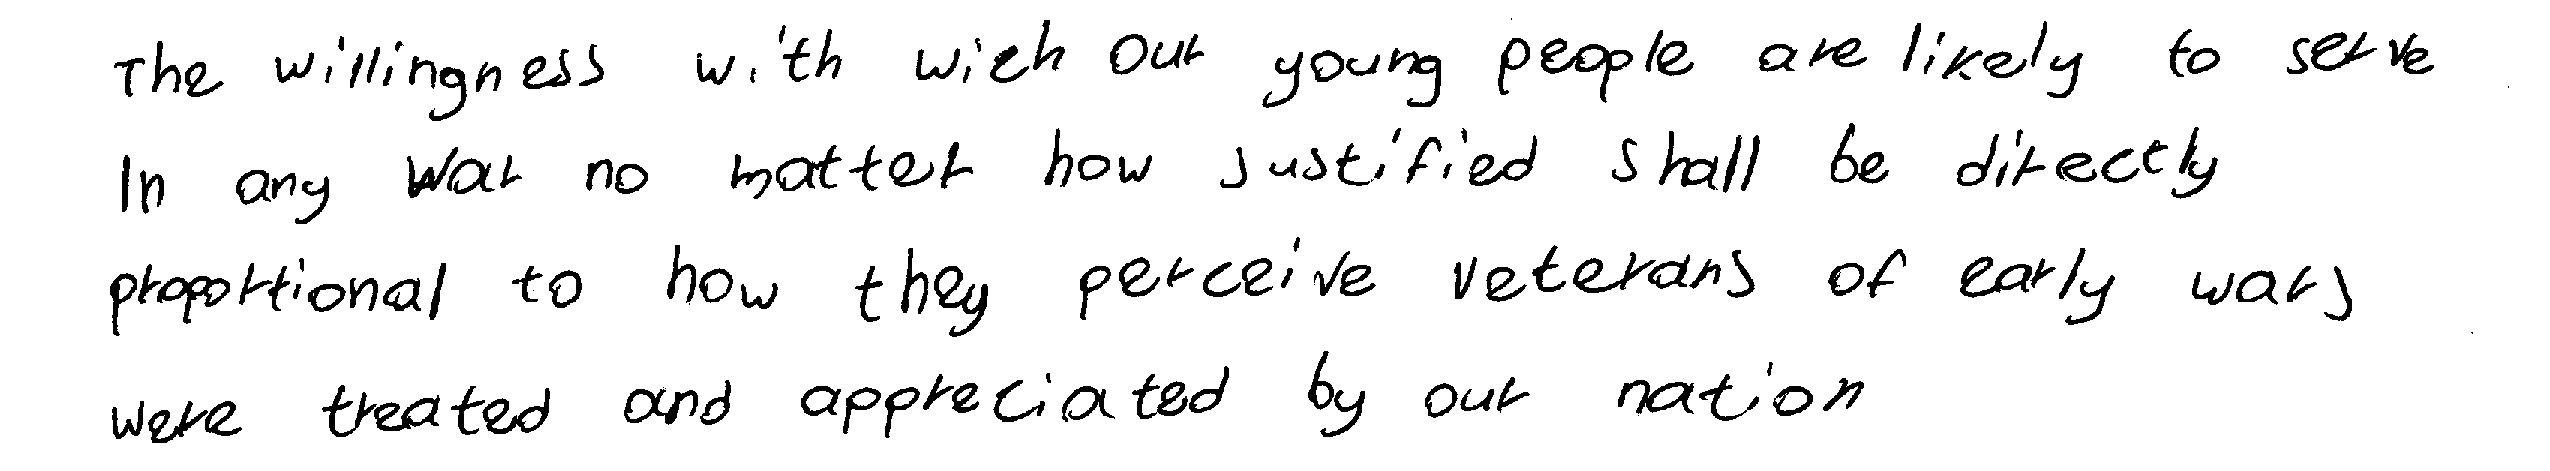 The willingness with wich our young people are likely to serve
In any war no matter how justified shall be directly
proportional to how they perceive veterans of early wars
were treated and appreciated by our nation